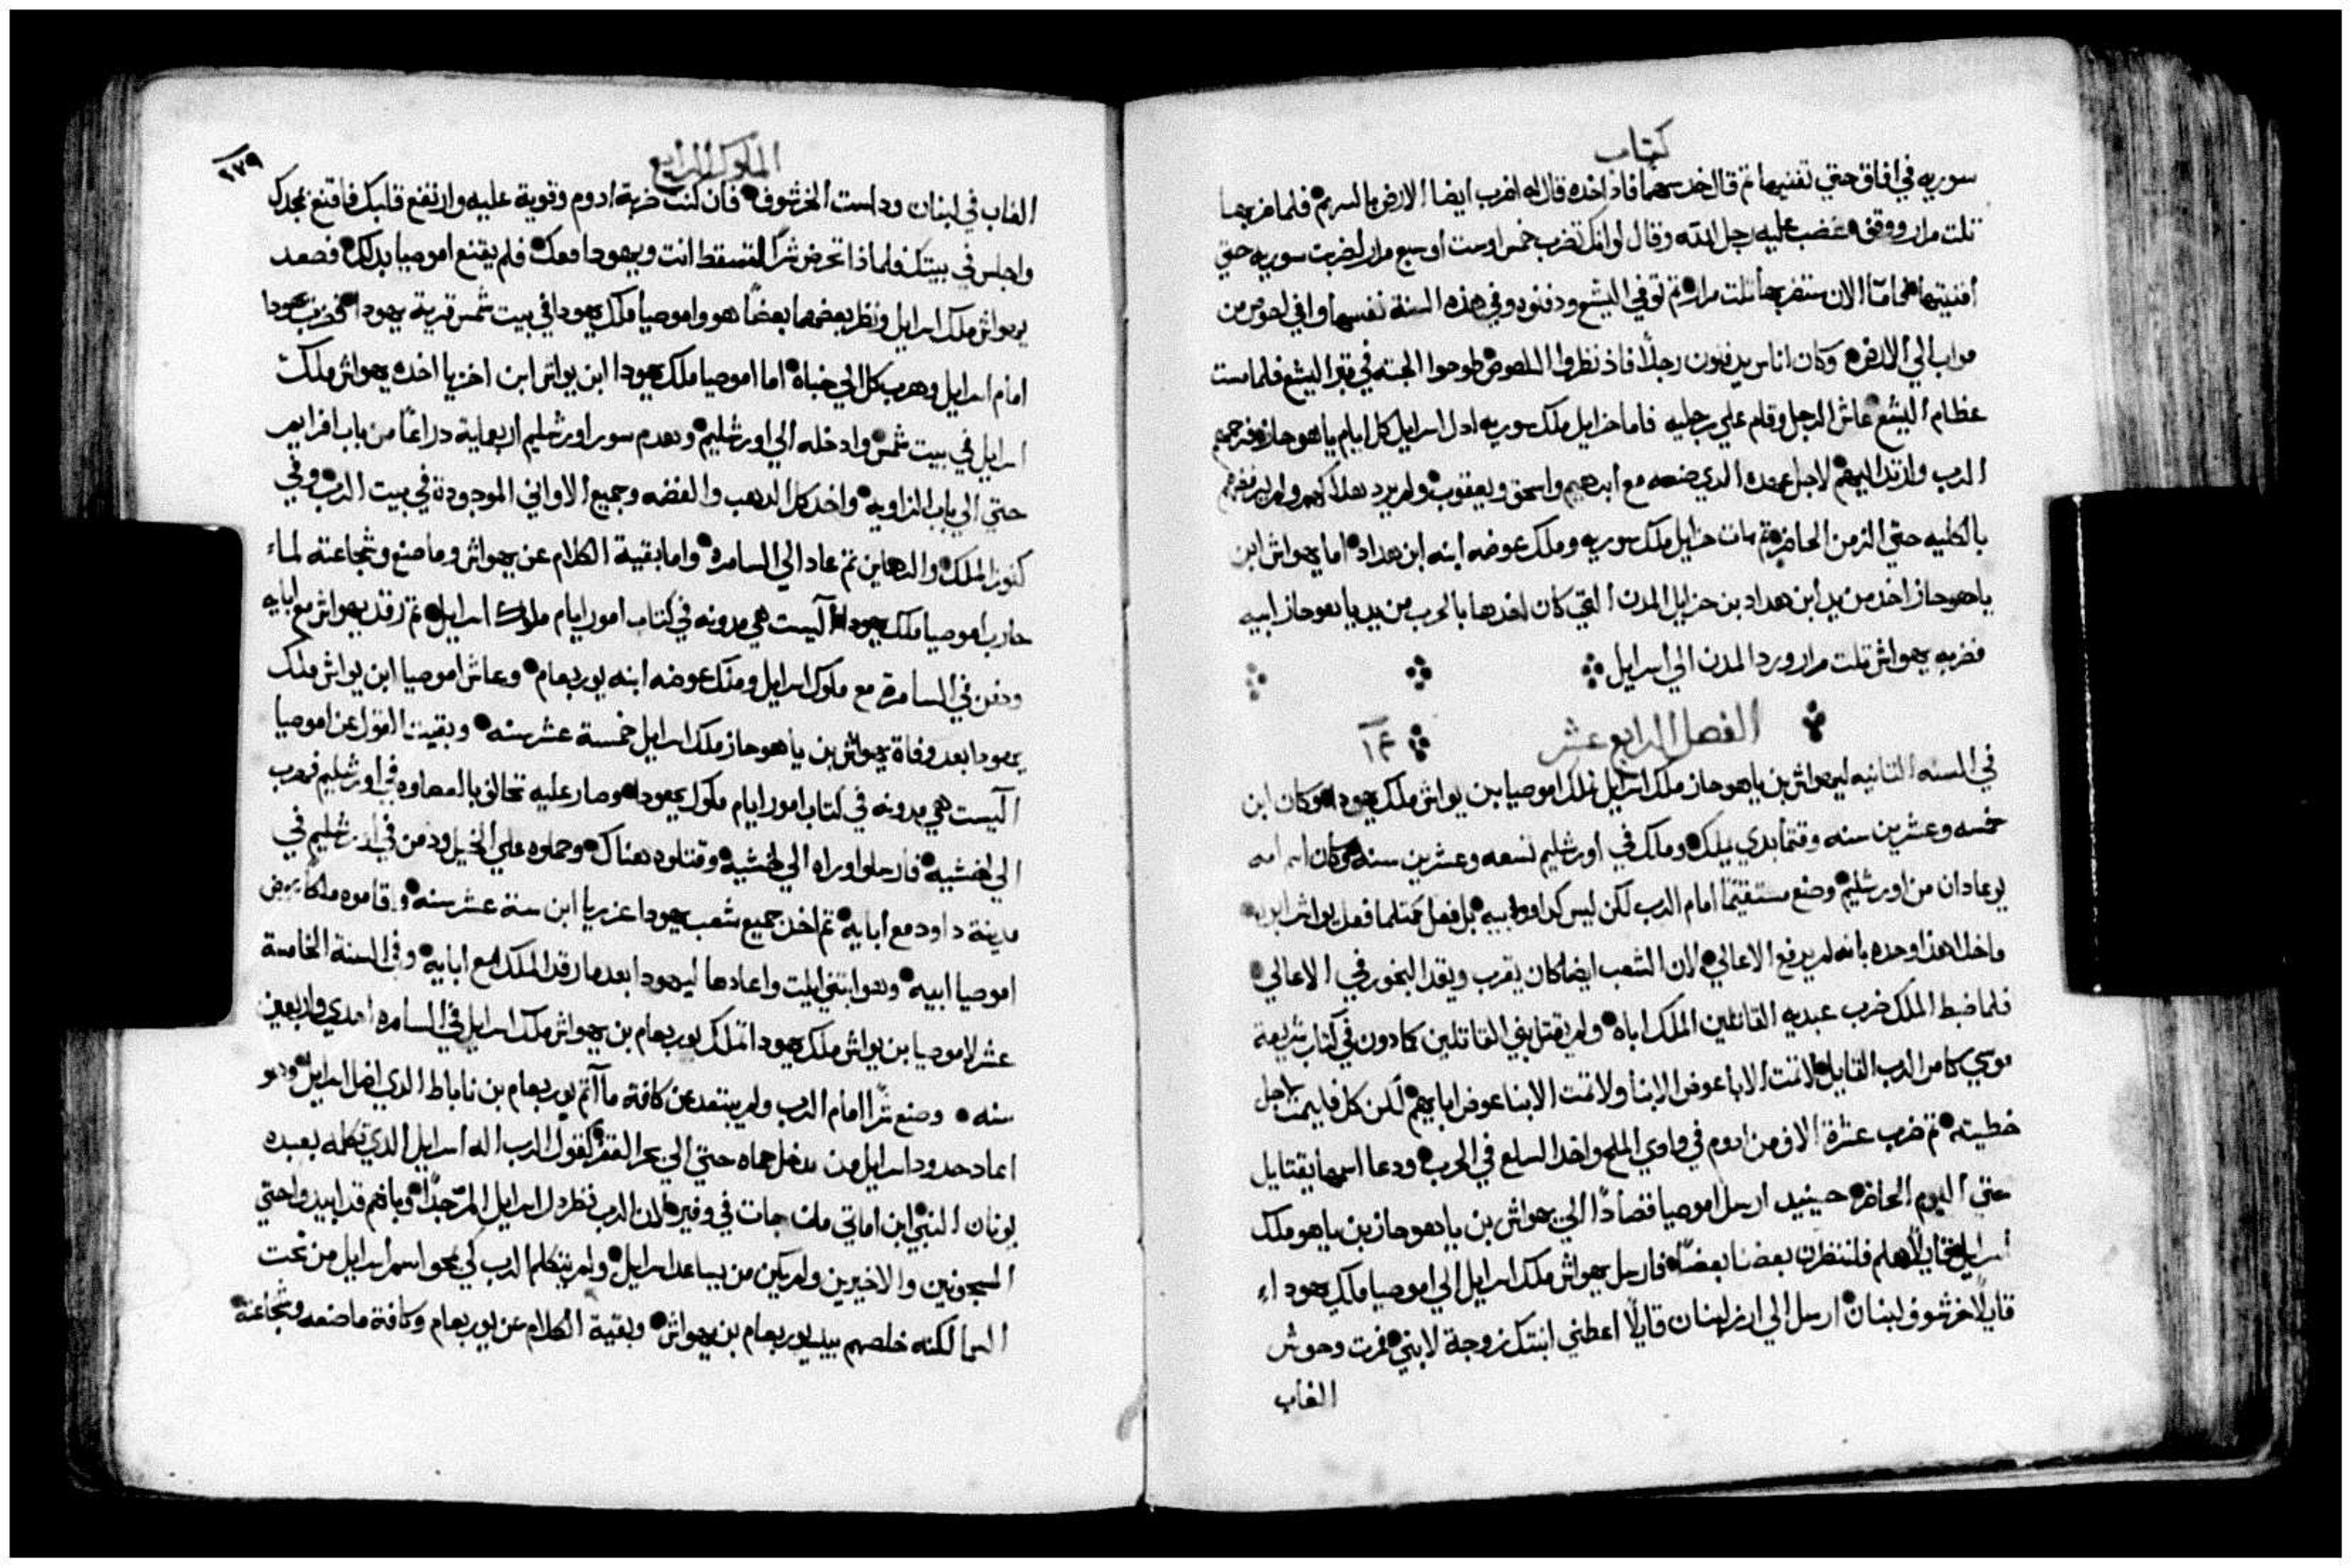 كتاب
سوريه في افاق حتي تفنيها ثم قال خد سهما فاذ اخده قال له اضرب ايضا الارض بالسهم فلما ضربها
تلت مرار ووقف غضب عليه رجل الله وقال لو انك تضرب خمس او ست او سبع مرار لضربت سوريه حتي
افنيتها فاما الان ستضربها تلت مرار ثم توفي اليشع ودفنوه وفي هذه السنة نفسها وافي لصوص من
مواب الي الارض وكان اناس يدفنون رجلاً فاذ نظروا اللصوص طرحوا الجته في قبر اليشع فلما مست
عظام اليشع عاش الرجل وقام علي رجليه فاما حزايل ملك سوريه ادل اسرايل كل ايام ياهوحاز فرحمهم
الرب وارتد اليهم لاجل عهده الدي صنعه مع ابرهيم واسحق ويعقوب ولم يرد هلاكهم ولم يرفضهم
بالكليه حتي الزمن الحاضر ثم مات حزايل ملك سوريه وملك عوضه ابنه ابن هداد اما يهواش ابن
ياهوحاز اخد من يد ابن هداد بن حزايل المدن التي كان اخدها بالحرب من يد ياهوحاز ابيه
فضربه يهواش تلت مرار ورد المدن الي اسرايل
الفصل الرابع عشر ١٤
في السنه التانيه ليهواش بن ياهوحاز ملك اسرايل تملك اموصيا بن يواش ملك يهودا وكان ابن
خمسه وعشرين سنه وقتما بدي يملك وملك في اورشليم تسعه وعشرين سنه وكان اسم امه
يوعادان من اورشليم وصنع مستقيمًا امام الرب لكن ليس كداوود ابيه بل فعل كمتلما فعل يواش ابوه
ماخلا هذا وحده بانه لم يرفع الاعالي لان الشعب ايضا كان يقرب ويقد البخور في الاعالي
فلما ضبط الملك ضرب عبديه القاتلين الملك اباه ولم يقتل بني القاتلين كما دون في كتاب شريعة
موسي كامر الرب القايل لا تمت الابا عوض الابنا ولا تمت الابنا عوض ابايهم لكن كل فليمت لاجل
خطيته ثم ضرب عشرة الاف من ادوم في وادي الملح واخد السلع في الحرب ودعا اسمها يقتايل
حتي اليوم الحاضر حينيد ارسل اموصيا قصادًا الي يهواش بن ياهوحاز بن ياهو ملك
اسرايل قايلاً هلم فلننظرن بعضنا بعضًا فارسل يهواش ملك اسرايل الي اموصيا ملك يهودا
قايلاً خرشوف لبنان ارسل الي ارز لبنان قايلاً اعطني ابنتك زوجة لابني فمرت وحوش
الغاب
الملوك الرابع
٢٧٩
الغاب في لبنان وداست الخرشوف فان كنت ضربة ادوم وقوية عليه وارتفع قلبك فاقنع بمجدك
واجلس في بيتك فلماذا تحرض شرًا لتسقط انت ويهودا معك فلم يقنع اموصيا بدلك فصعد
يهواش ملك اسرايل ونظر بعضهما بعضًا هو واموصيا ملك يهودا في بيت شمس قرية يهودا فضرب يهودا
امام اسرايل وهرب كل الي خباه اما اموصيا ملك يهودا ابن يواش ابن اخزيا اخده يهواش ملك
اسرايل في بيت شمس وادخله الي اورشليم وهدم سور اورشليم اربعماية دراعًا من باب افرايم
حتي الي باب الزاويه واخد كل الدهب والفضه وجميع الاواني الموجودة في بيت الرب وفي
كنوز الملك والرهاين تم عاد الي السامره واما بقية الكلام عن يهواش وما صنع وشجاعته لما
حارب اموصيا ملك يهودا اليست هي مدونه في كتاب امور ايام ملوك اسرايل ثم رقد يهواش مع ابايه
ودفن في السامرة مع ملوك اسرايل وملك عوضه ابنه يوربعام وعاش اموصيا ابن يواش ملك
يهودا بعد وفاة يهواش بن ياهوحاز ملك اسرايل خمسة عشر سنه وبقيت القول عن اموصيا
اليست هي مدونه في كتاب امور ايام ملوك يهودا وصار عليه تحالف بالمعاوه في اورشليم فهرب
الي لخشيه فارسلوا وراه الي لخشيه وقتلوه هناك وحملوه علي الخيل ودفن في اورشليم في
مدينة داود مع ابايه ثم اخد جميع شعب يهودا عزريا ابن ستة عشر سنه واقاموه ملكًا عوض
اموصيا ابيه وهو ابتني ايليت واعادها ليهودا بعدما رقد الملك مع ابايه وفي السنة الخامسة
عشر لاموصيا بن يواش ملك يهودا تملك يوربعام بن يهواش ملك اسرايل في السامره احدي واربعين
سنه وصنع شرًا امام الرب ولم يبتعد عن كافة ما آتم يوربعام بن ناباط الدي اضل اسرايل وهو
اعاد حدود اسرايل من مدخل حماه حتي الي بحر القفر كقول الرب اله اسرايل الدي تكلمه بعبده
يونان النبي ابن اماتي من جات في وفير لان الرب نظر دل اسرايل المر جدًا وبانهم قد ابيدوا حتي
المسجونين والاخيرين ولم يكن من يساعد اسرايل ولم يتكلم الرب كي يمحو اسم اسرايل من تحت
السما لكنه خلصهم بيد يوربعام بن يهواش وبقية الكلام عن يوربعام وكافة ما صنعه وشجاعته